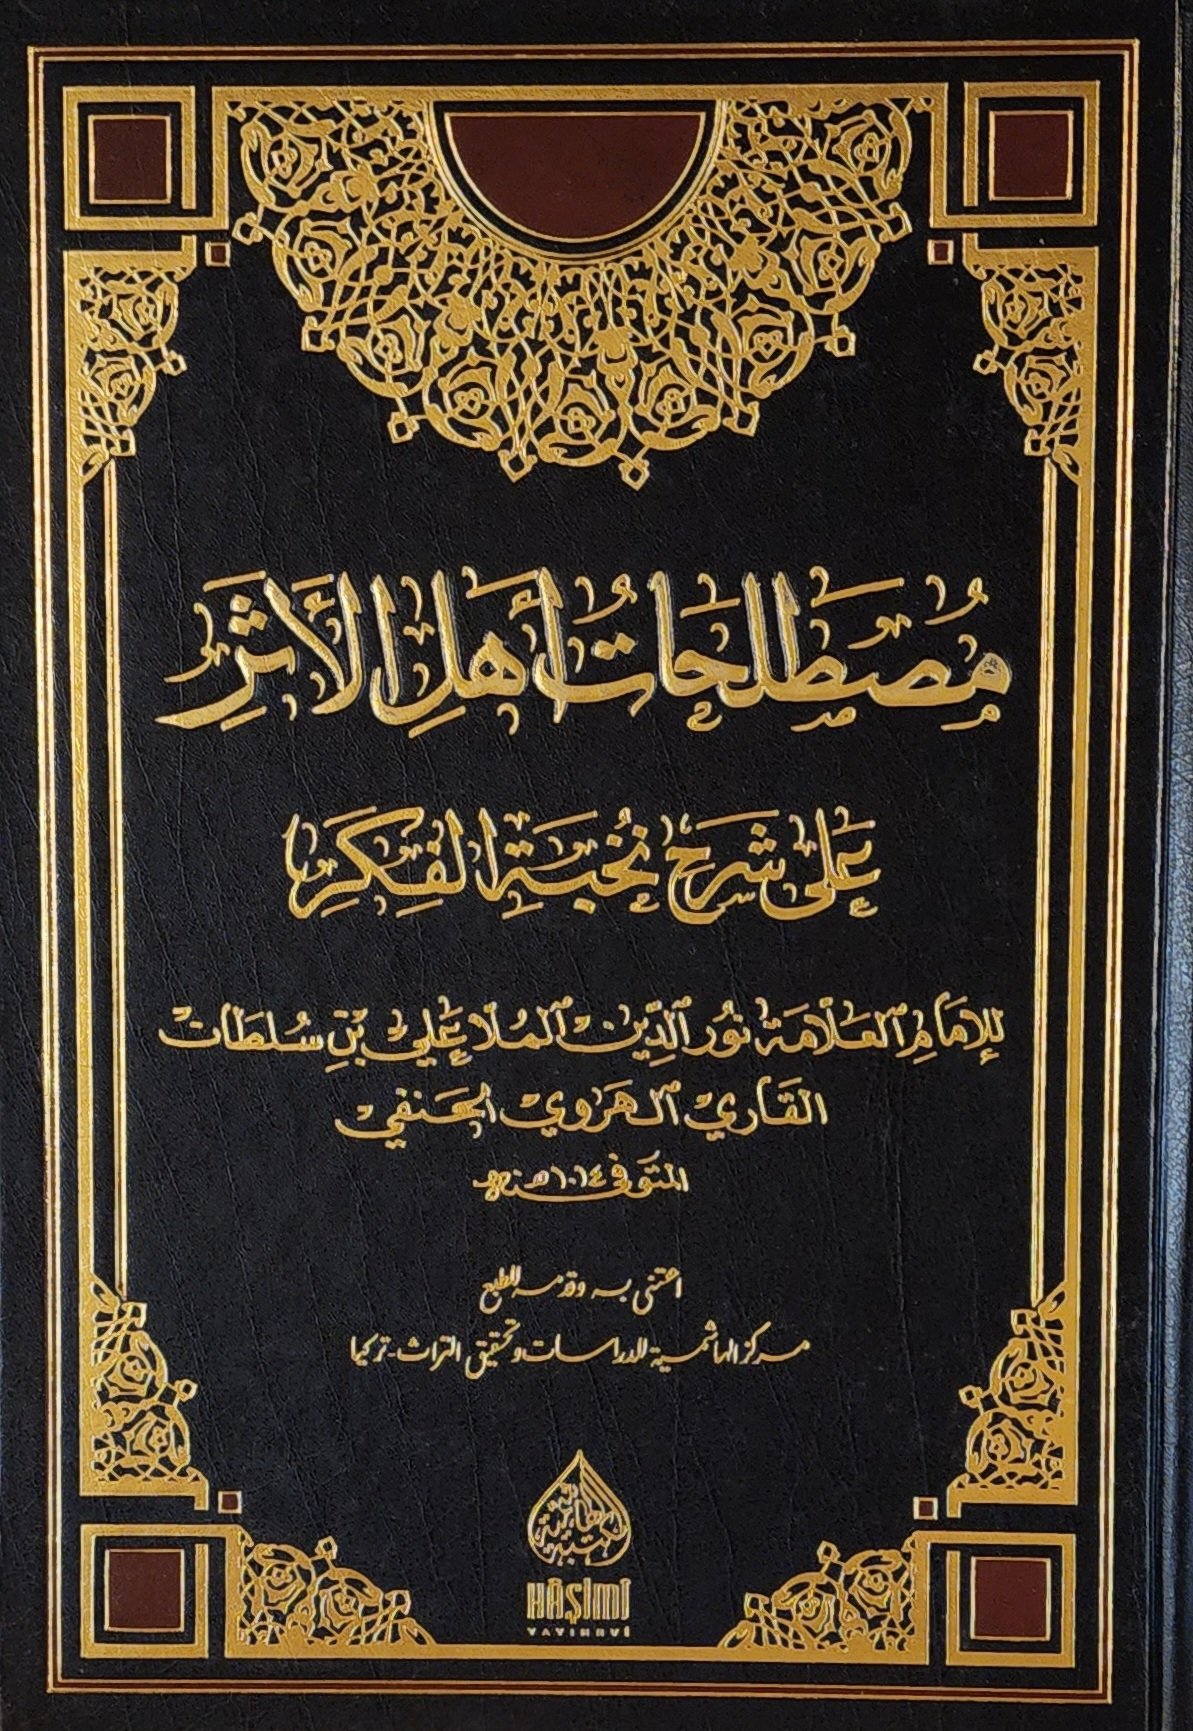 مُصْطَلَحَاتُ أَهْلِ الْأَثَرِ
عَلَى شَرْحِ نُخْبَةِ الْفِكَرِ
لِلإِمَامِ العَلَّامَة نُورُ الدِّين المُلَّا عَلِي بْنِ سُلطَان
القَاري الهَرَوِي الحَنَفِي
المتوفى ١٠١٤هـ
اعتنى به وقدمه للطبع
مركز الهاشمية للدراسات وتحقيق التراث - تركيا
مكتبة هاشمية
HÂŞİMİ
YAYINEVİ